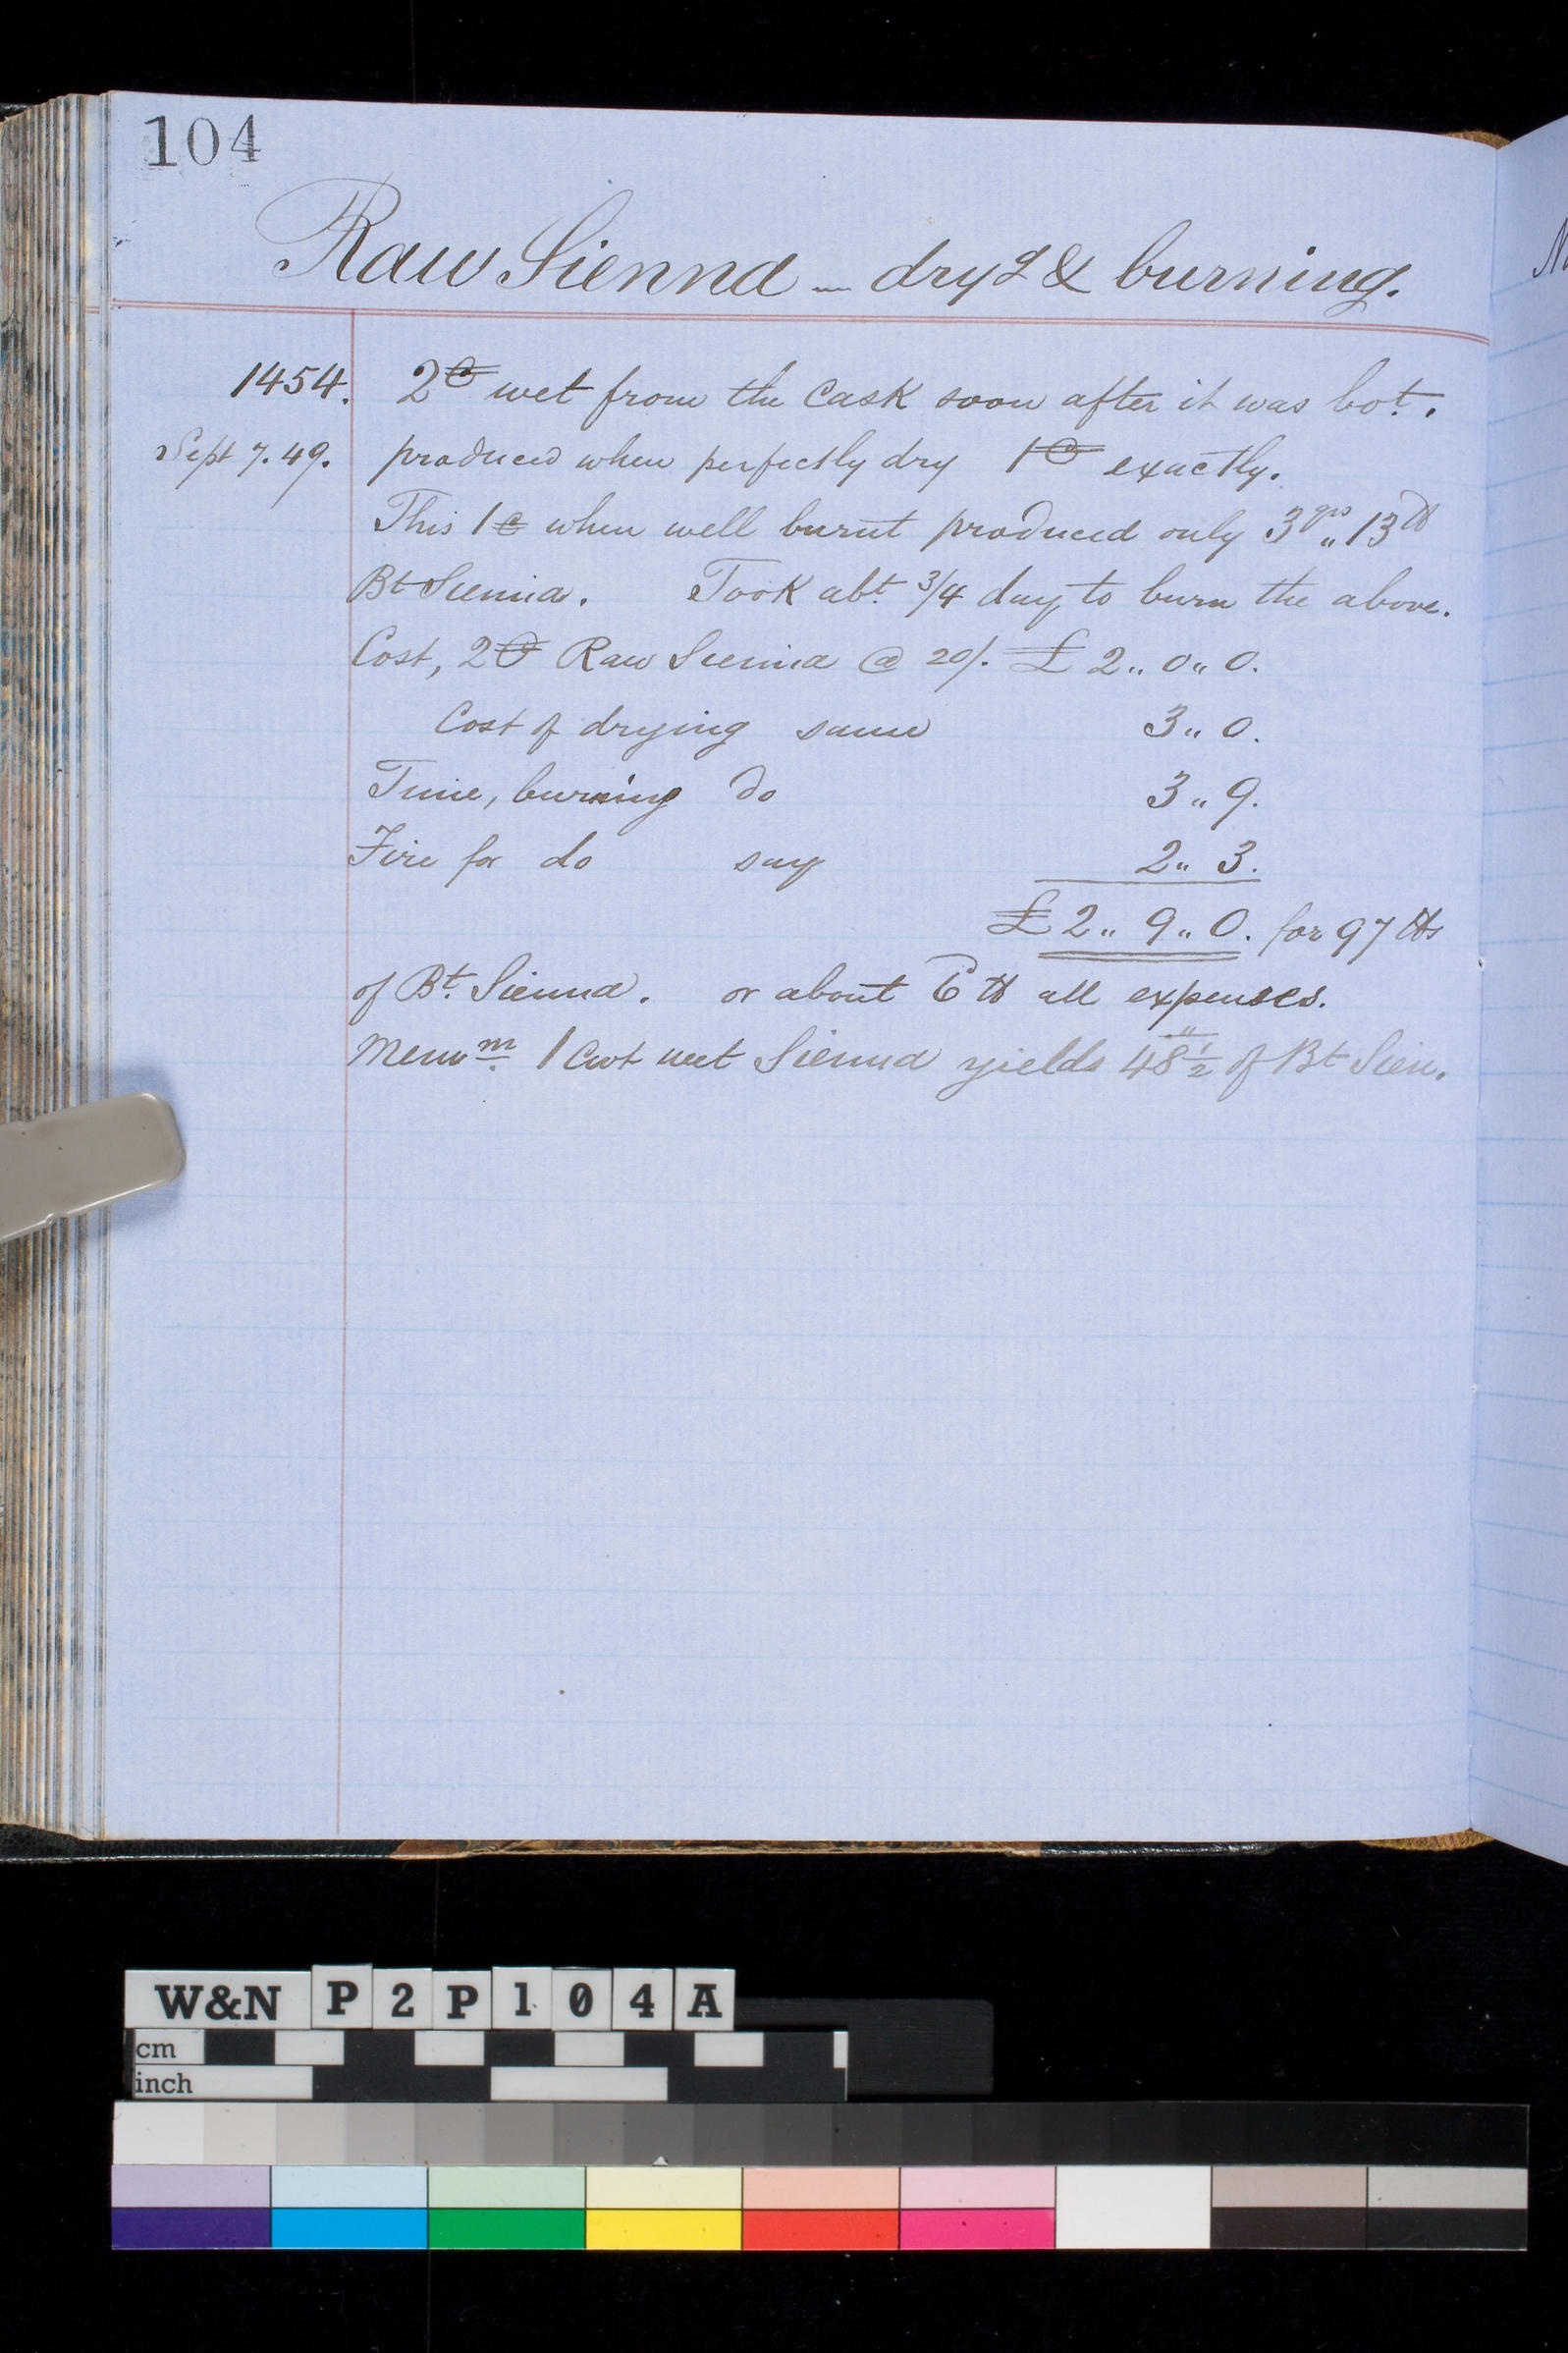 104
Raw Sienna — dryg & burning.
1454. 2 C wet from the Cask soon after it was bot.
Sept 7. 49. produced when perfectly dry 1 C exactly.
This 1 C when well burnt produced only 3 qrs „ 13 ℔
Bt Sienna. Took abt. 3/4 day to burn the above.
Cost, 2 C Raw Sienna @ 20/. £ 2 „ 0 „ 0.
Cost of drying same 3 „ 0.
Time, burning do 3 „ 9.
Fire for do say 2 „ 3.
£ 2 „ 9 „ 0. for 97 ℔s
of Bt. Sienna. or about 6 ℔ all expenses.
Memm. 1 Cwt wet Sienna yields 48 1/2 of Bt Sien.
W&N P2P104A
cm
inch